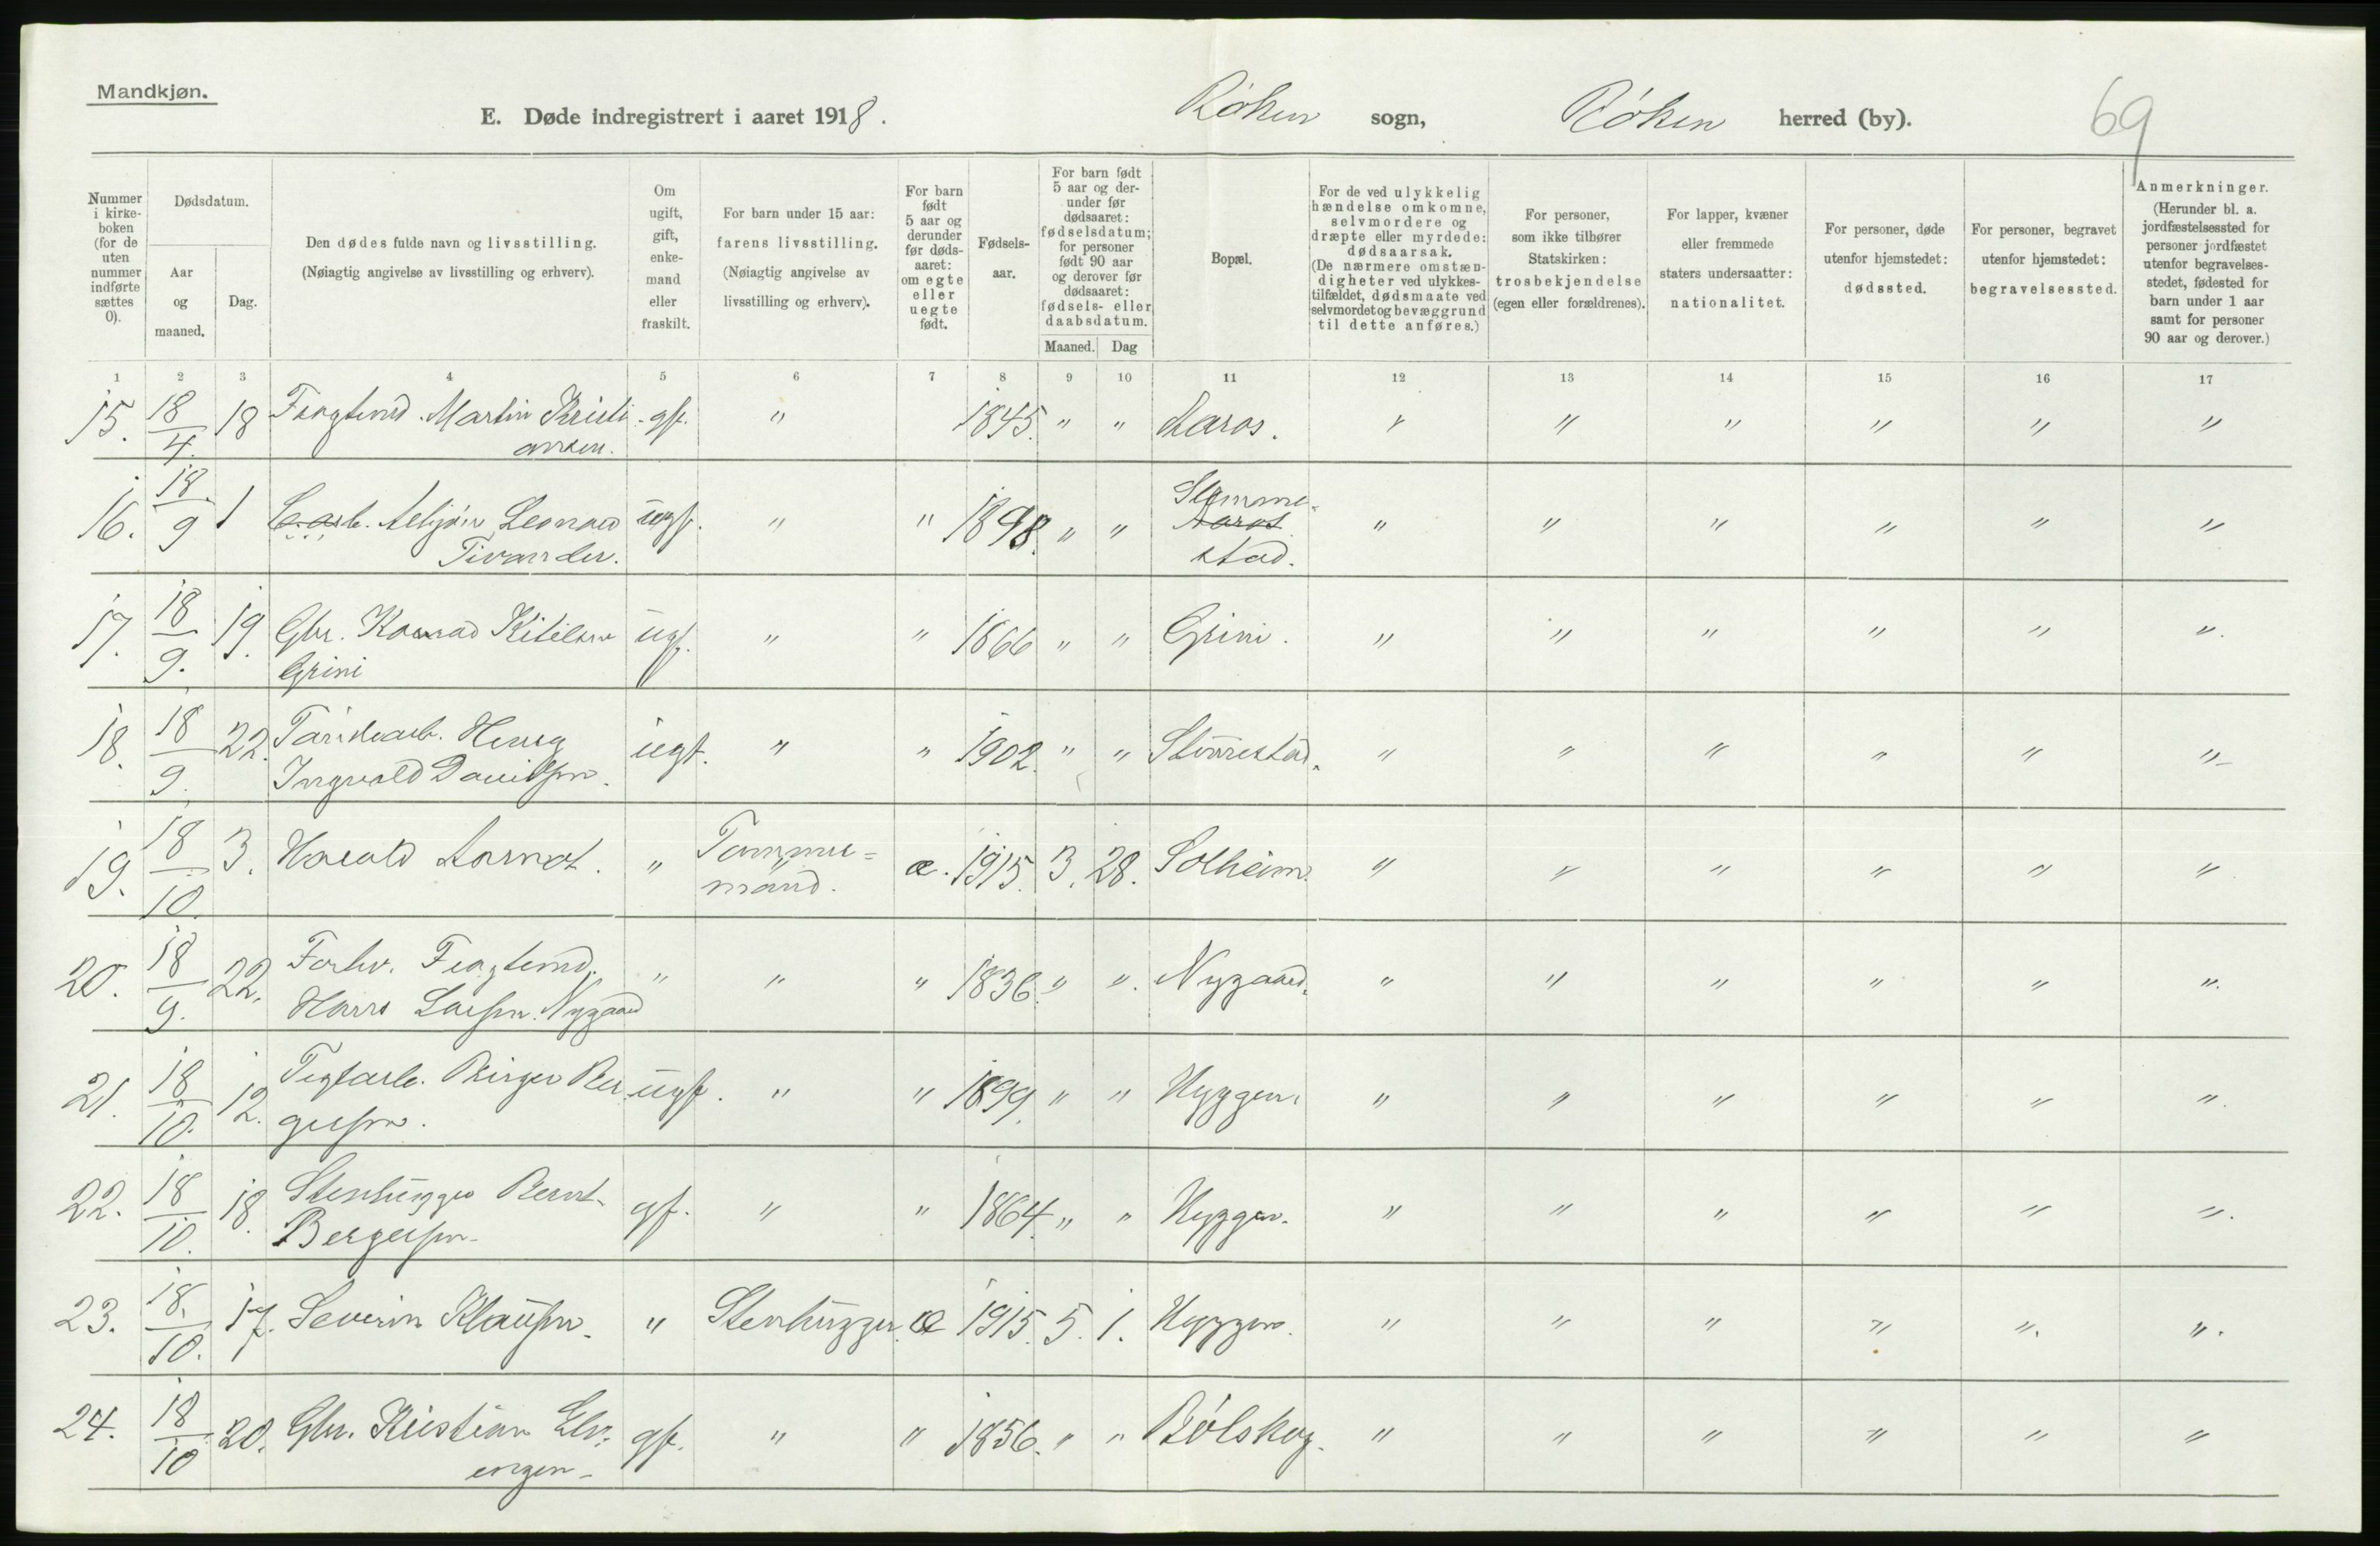 Mandkjøn.
E. Døde indregistrert i aaret 1918. Røken sogn, Røken herred (by). 69
Nummer i kirkeboken (for de uten nummer indførte sættes 0).
Dødsdatum.
Aar og maaned.
Dag.
Den dødes fulde navn og livsstilling.
(Nøiagtig angivelse av livsstilling og erhverv).
Om ugift, gift, enkemand eller fraskilt.
For barn under 15 aar: farens livsstilling.
(Nøiagtig angivelse av livsstilling og erhverv).
For barn født 5 aar og derunder før dødsaaret: om egte eller uegte født.
Fødselsaar.
For barn født 5 aar og derunder før dødsaaret: fødselsdatum; for personer født 90 aar og derover før dødsaaret: fødsels- eller daabsdatum.
Maaned. Dag
Bopæl.
For de ved ulykkelig hændelse omkomne, selvmordere og dræpte eller myrdede: dødsaarsak.
(De nærmere omstændigheter ved ulykkestilfældet, dødsmaate ved selvmordet og bevæggrund til dette anføres.)
For personer, som ikke tilhører Statskirken: trosbekjendelse (egen eller forældrenes).
For lapper, kvæner eller fremmede staters undersaatter: nationalitet.
For personer, døde utenfor hjemstedet: dødssted.
For personer, begravet utenfor hjemstedet: begravelsessted.
Anmerkninger.
(Herunder bl. a. jordfæstelsessted for personer jordfæstet utenfor begravelsesstedet, fødested for barn under 1 aar samt for personer 90 aar og derover.)
1 2 3 4 5 6 7 8 9 10 11 12 13 14 15 16 17
15. 18/4. 18 Martin Kristi- gft. " 1845. " " Aaros. " " " " " "
ansen.
16. 18/9 1 Asbjörn Leonard ugft. " " 1898. " " Slemme- " " " " " "
Tivander. Aaros stad.
17. 18/9. 19. Gbr. Konrad Kitilsen ugf. " " 1866 " " Grini. " " " " " ".
Grini
18. 18/9. 22. Henry ugt. " " 1902. " " " " " " " "
Ingvald Davidsen.
19. 18/10. 3. Harald Aarnot. " Tømmer= æ. 1915. 3. 28. Solheim. " " " " " "
mand.
20. 18/9. 22. Forhv. " " " 1836. " ". Nygaard. " " " " " ".
Hans Larsen. Nygaard
21. 18/10. 12. Teglarb. Birger Ber- ugf. " " 1899. " " Hyggen. " " " " " ".
gersen.
22. 18/10. 18. Stenhugger Bernt gf. " " 1864. " " Hyggen. " " " " " ".
Bergersen
23. 18/10. 17. Severin Klausen. " Stenhugger. æ 1915. 5. 1. Hyggen. " " " " ". ".
24. 18/10 20. Gbr. Kristian Elv- gft. " " 1856. " " Bölskog. " " " " " "
engen